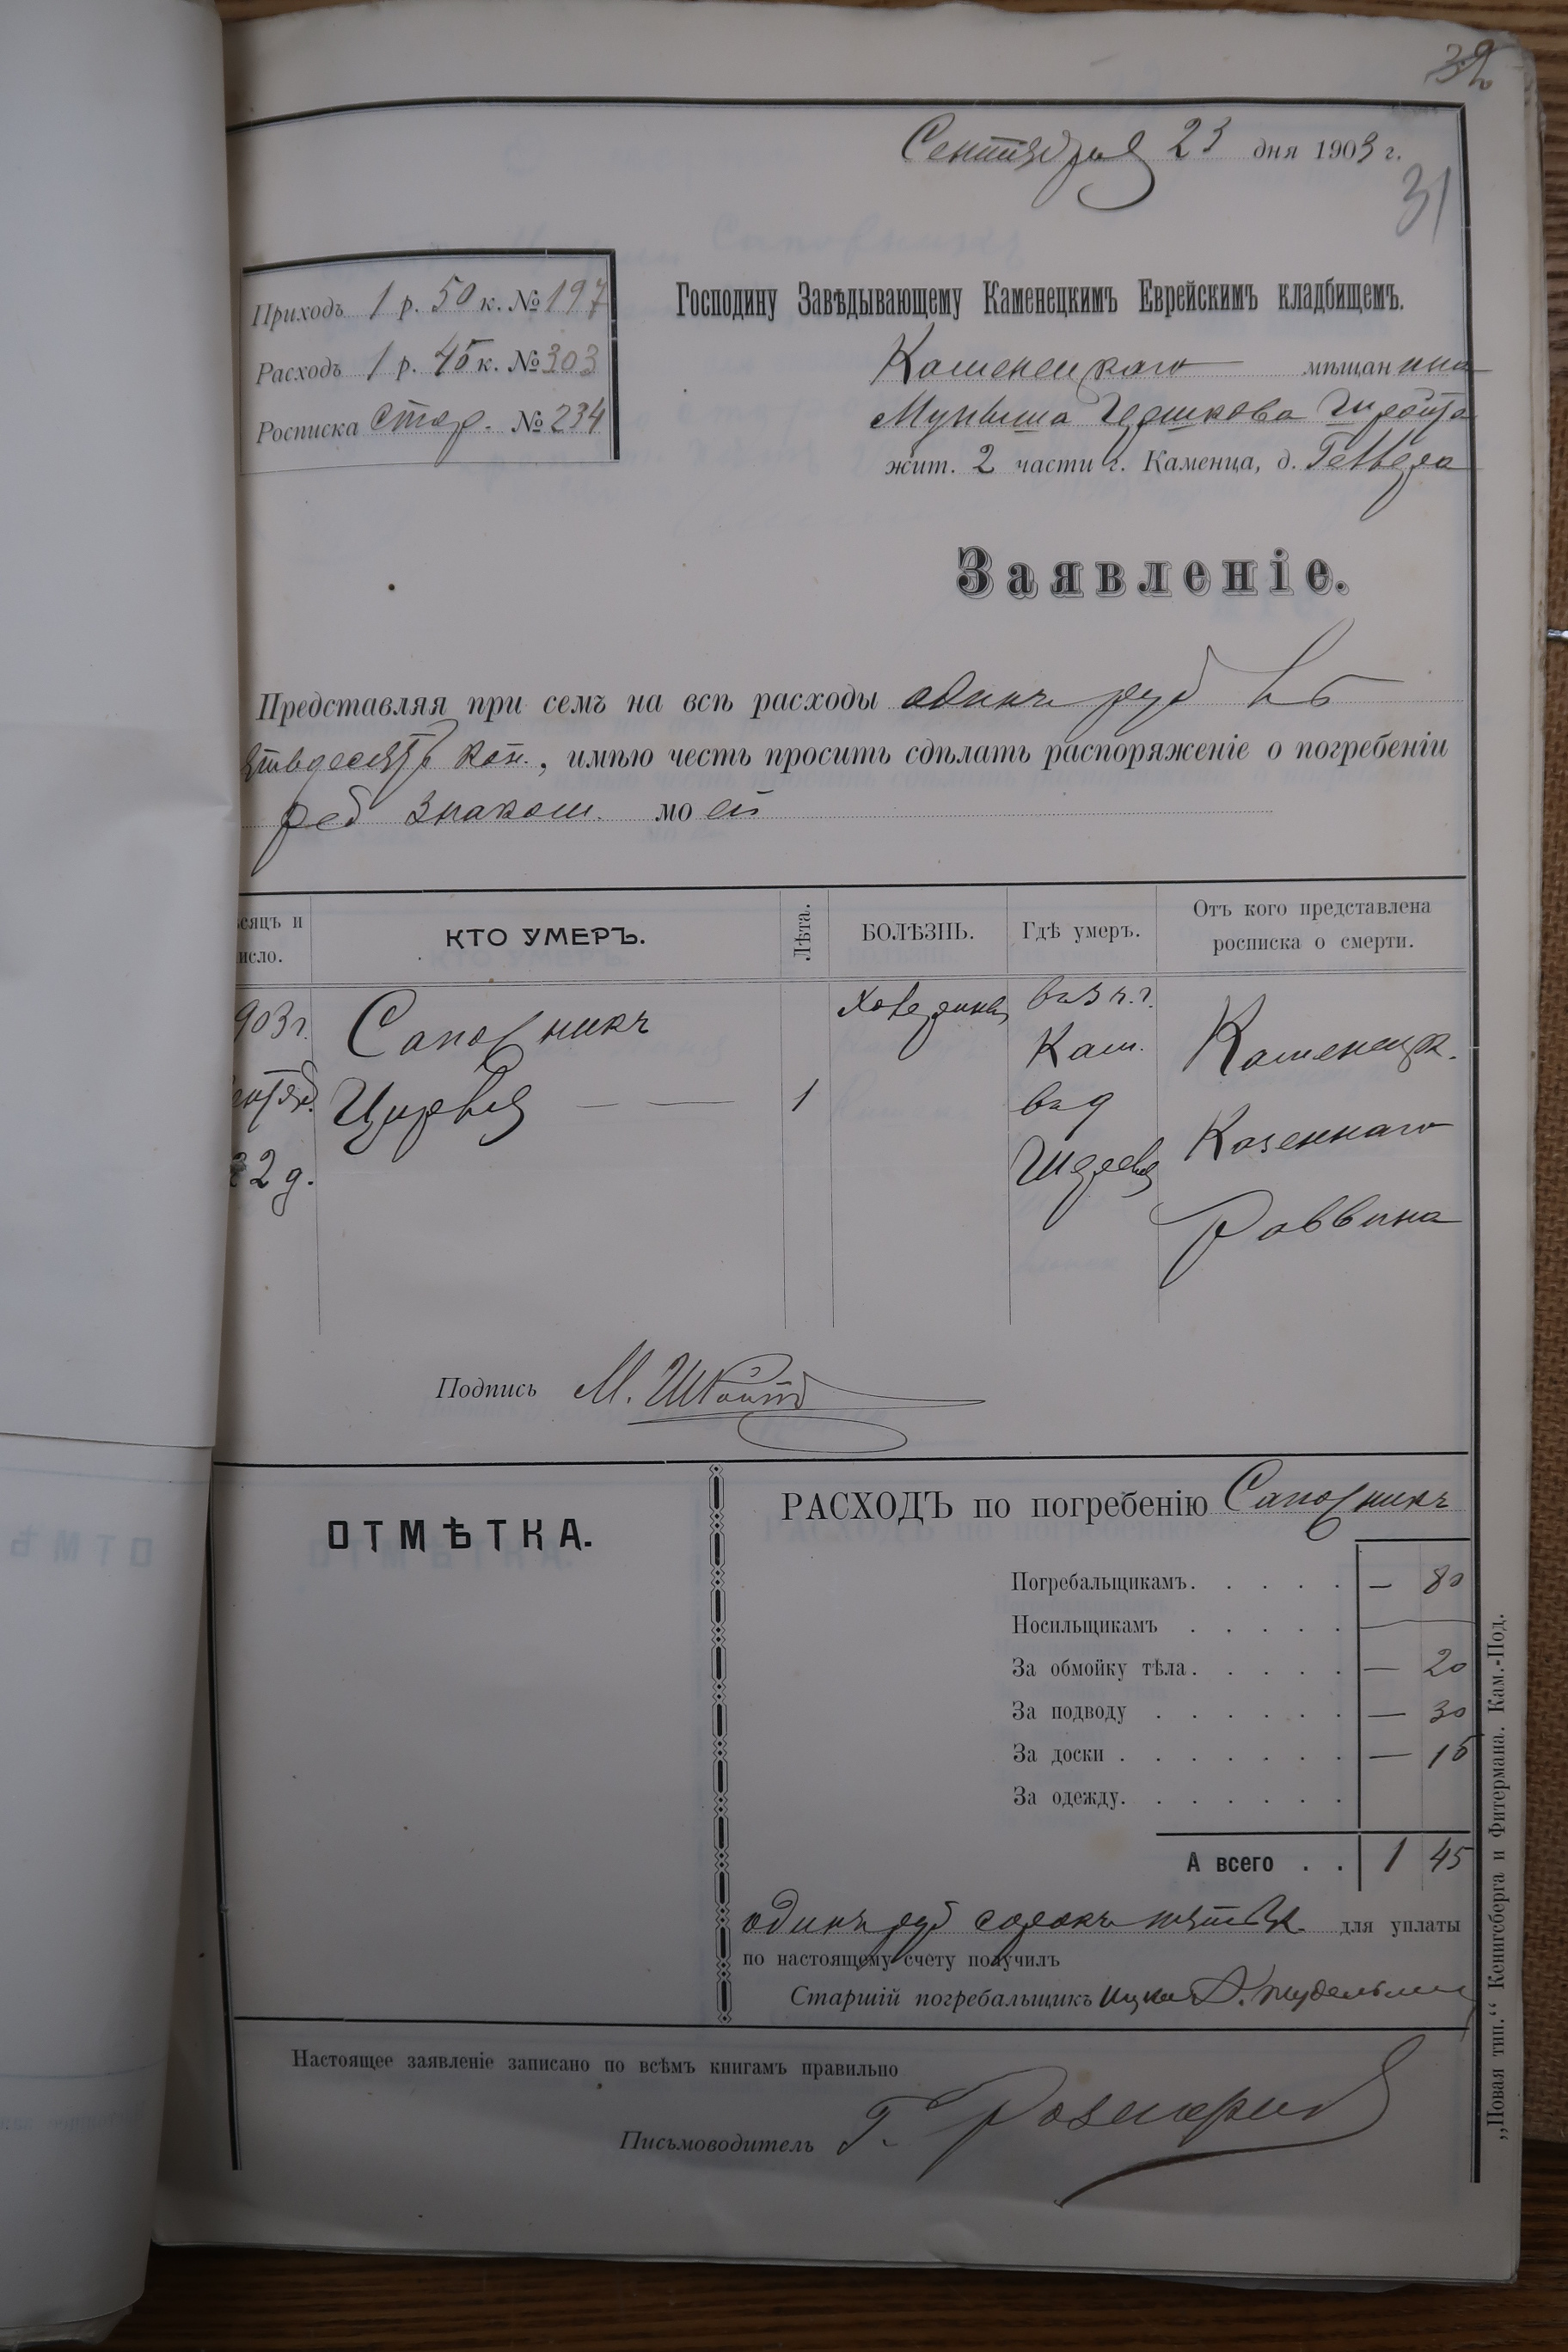 32
Сентября 23 дня 1903 г.
31
Приходъ 1 р. 50 к. № 197
Расходъ 1 р. 45 к. № 303
Росписка стар. № 234
Господину Завѣдывающему Каменецкимъ Еврейскимъ кладбищемъ.
Каменецкаго мѣщанина
Муниша Гершкова
жит. 2 части г. Каменца, д. Геллера
Заявленіе.
Представляя при семъ на всѣ расходы одинъ руб
коп., имѣю честь просить сдѣлать распоряженіе о погребеніи
реб знаком. моей
есяцъ и
исло.
КТО УМЕРЪ.
Лѣта.
БОЛѢЗНЬ.
Гдѣ умеръ.
Отъ кого представлена
росписка о смерти.
903 г.
22 д.
Сапожникъ
Цирля
1
Холерина
въ 3 ч. г.
Кам.
въ д
Каменецк.
Казеннаго
Раввина
Подпись М.
ОТМѢТКА.
РАСХОДЪ по погребенію Сапожникъ
Погребальщикамъ. . . . . — 80
Носильщикамъ . . . . . —
За обмойку тѣла. . . . . — 20
За подводу . . . . . . — 30
За доски . . . . . . . — 15
За одежду. . . . . . .
А всего . . 1 45
одинъ руб сорокъ пять к. для уплаты
по настоящему счету получилъ
Старшій погребальщикъ
Настоящее заявленіе записано по всѣмъ книгамъ правильно
Письмоводитель Г.
„Новая тип.“ Кенигсберга и Фитермана. Кам.-Под.